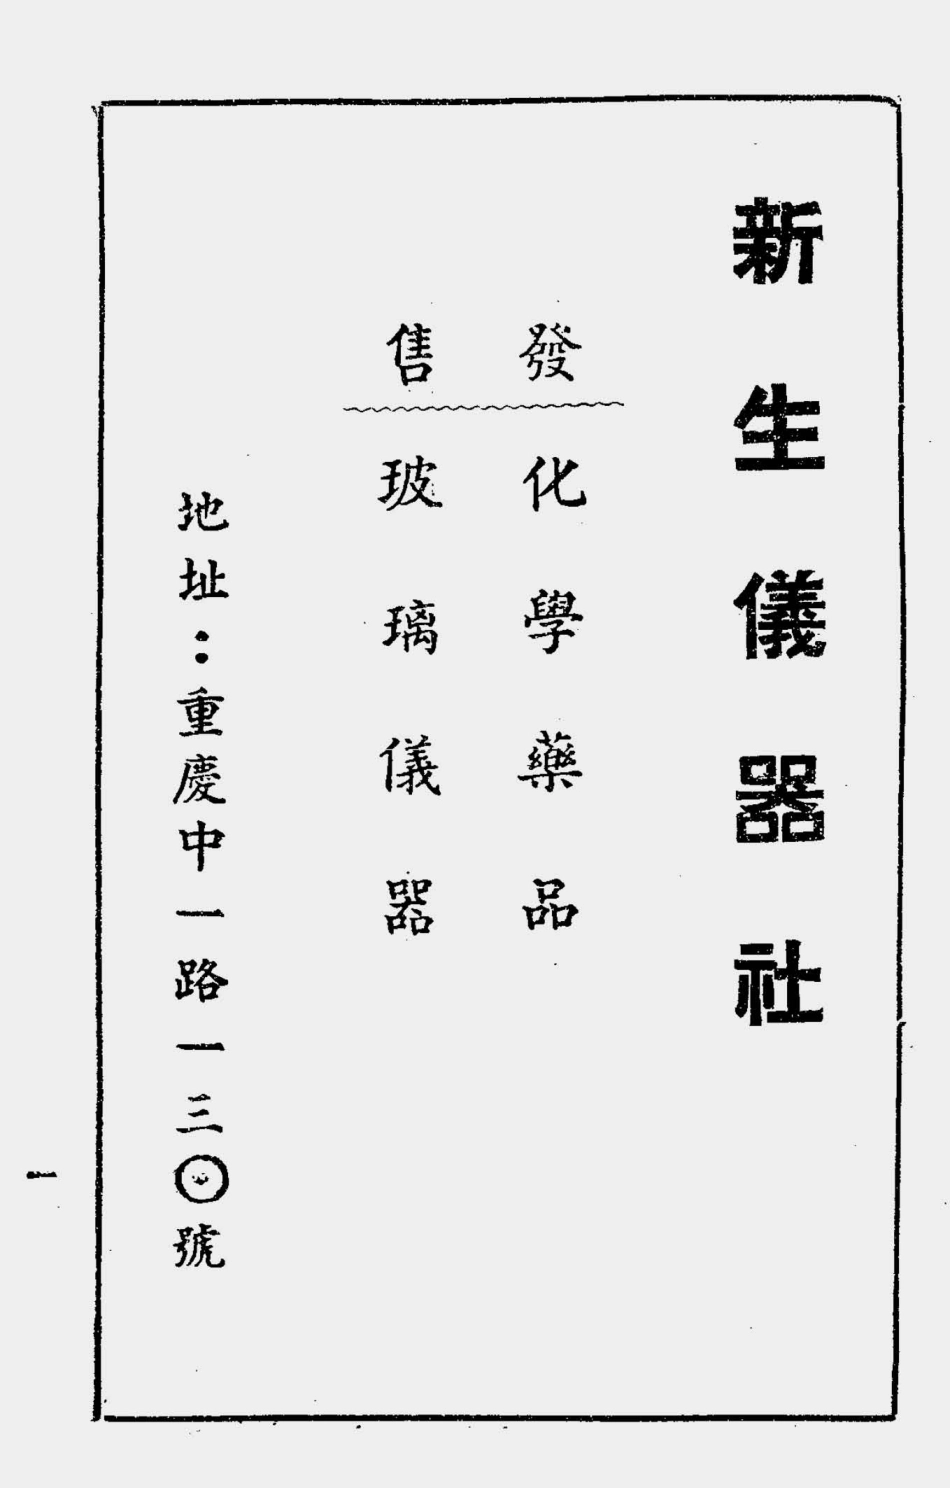 新生儀器社
發售
化學藥品
玻璃儀器
地址：重慶中一路一三〇號
一